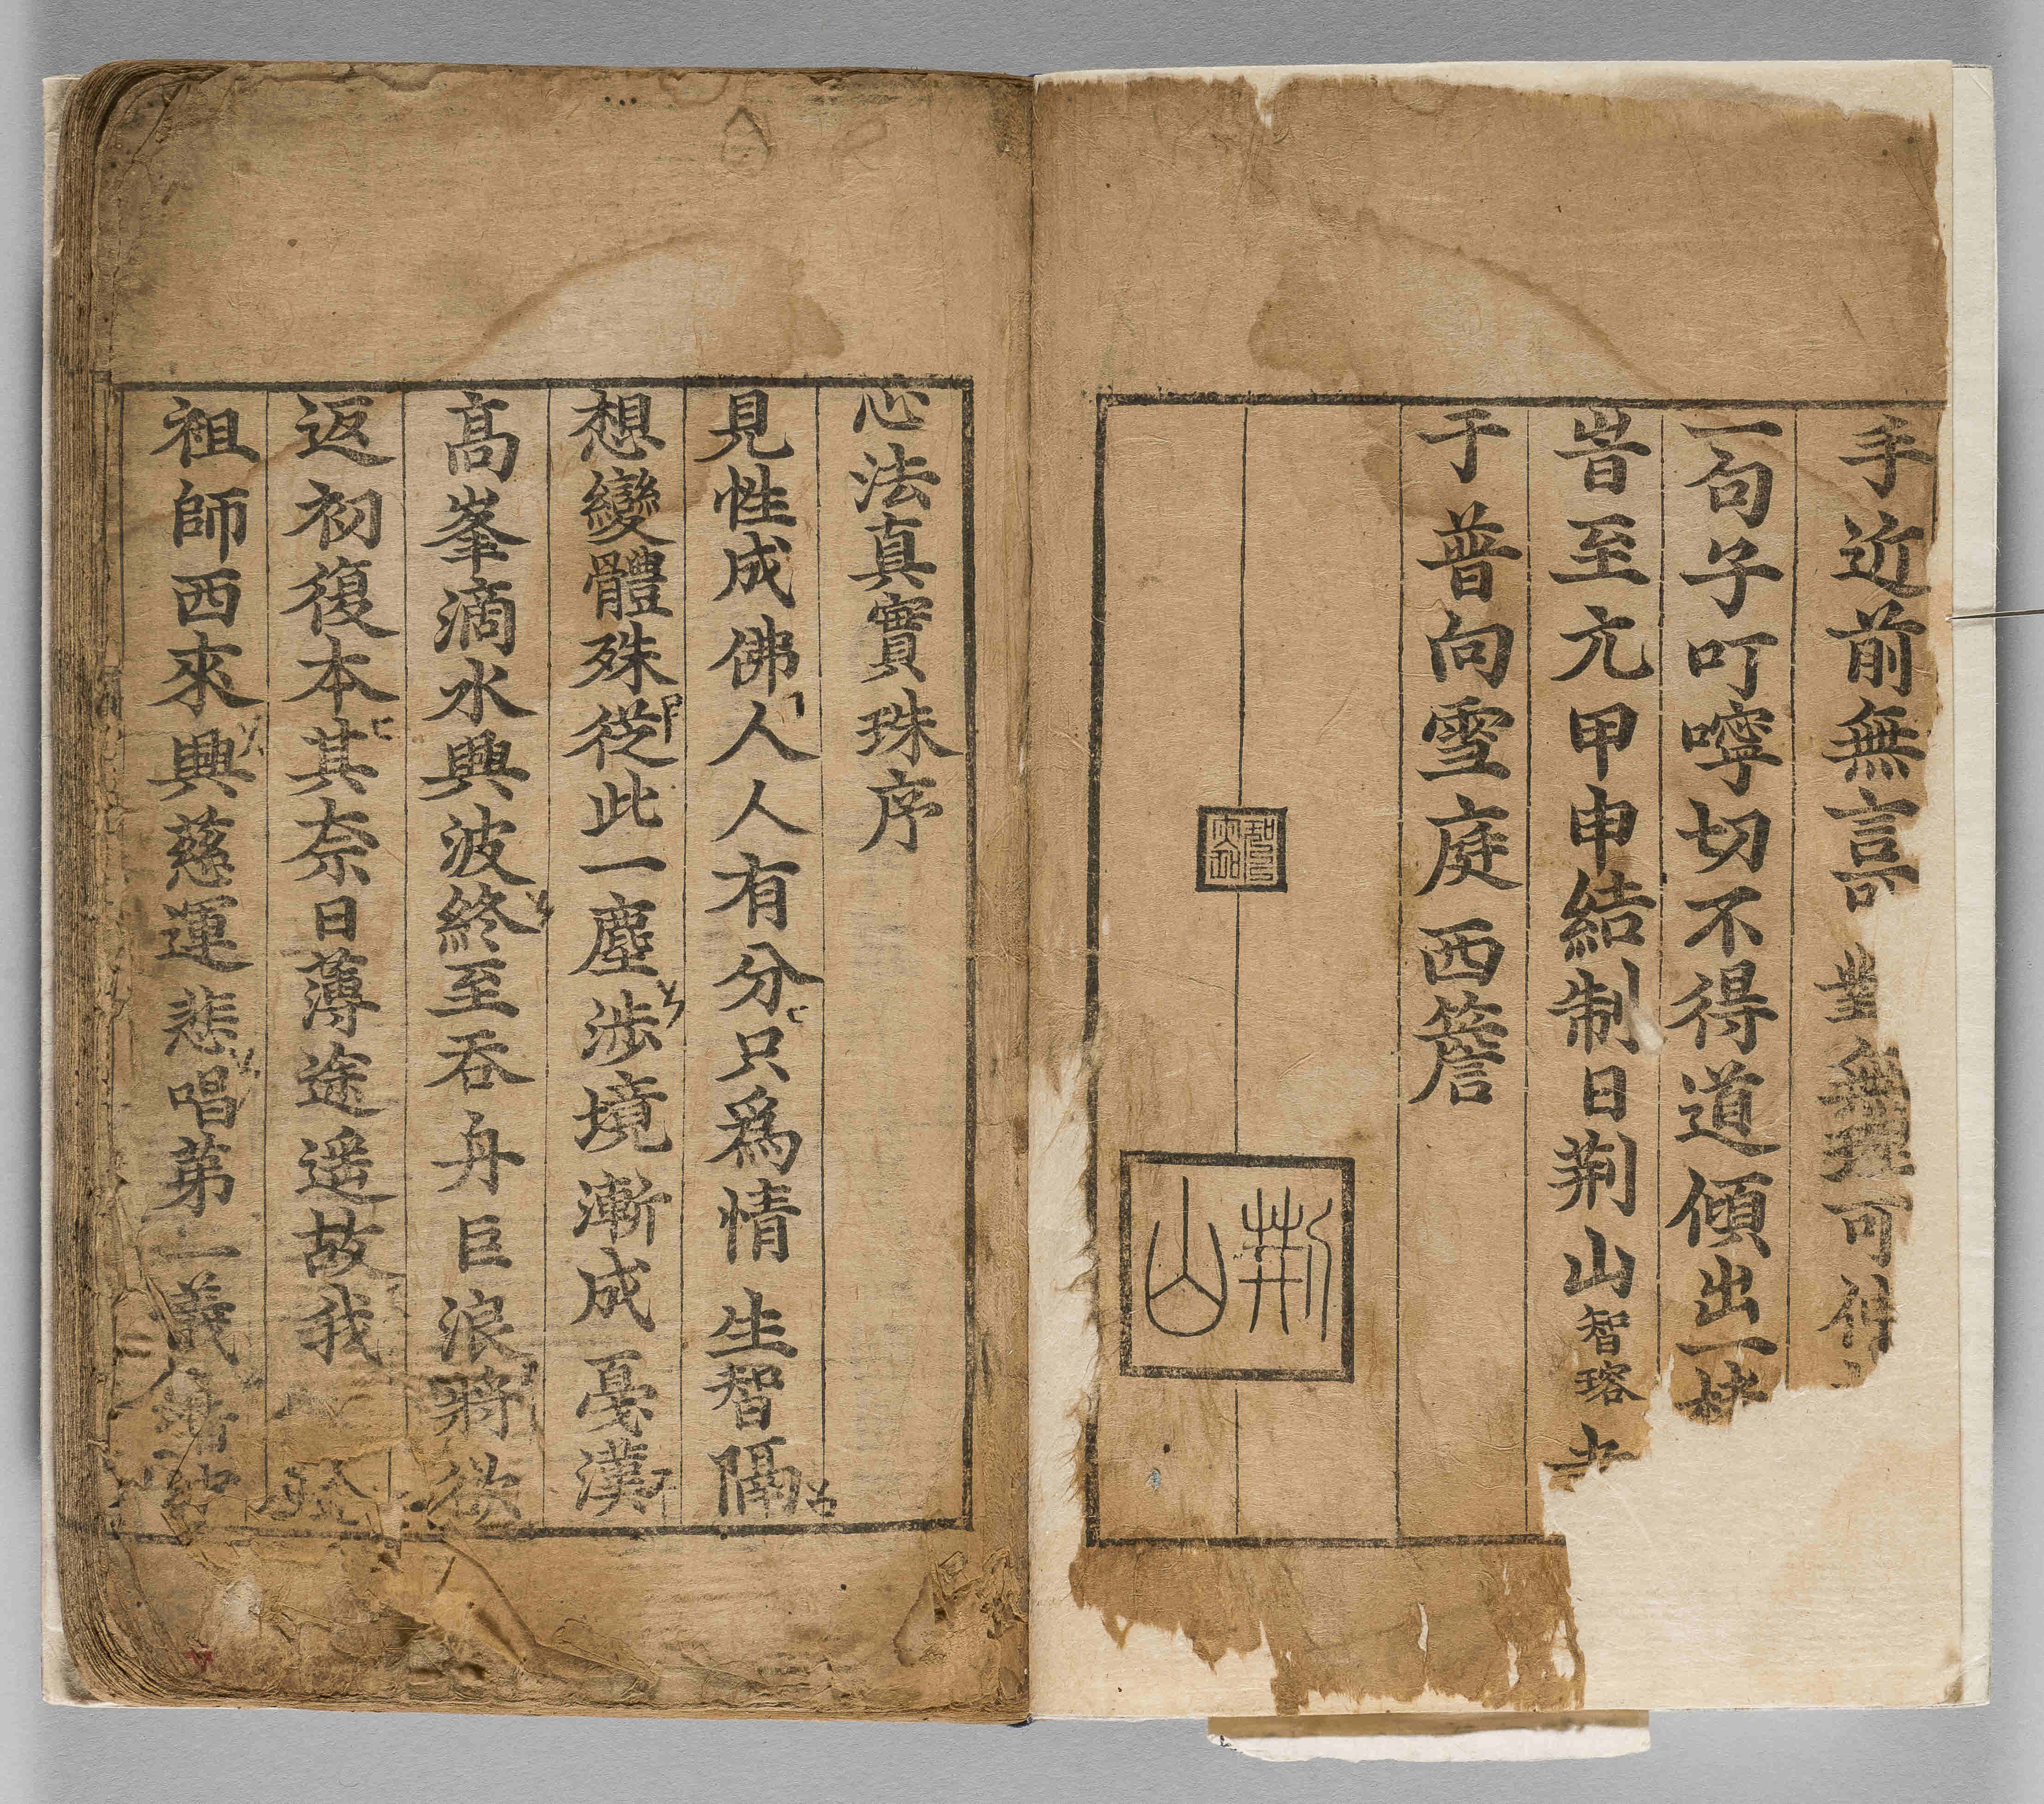 手近前無言對無理可伸
一句子叮嚀切不得道傾出一
旹至亢甲申結制日荆山智瑢
于普向雪庭西簷
荆山
心法真實珠序
見性成佛人人有分只爲情生智隔
想變體殊從此一塵涉境漸成憂漢
高峯滴水興波終至吞舟巨浪將欲
返初復本其柰日薄途遥故我
祖師西來興慈運悲唱苐一義